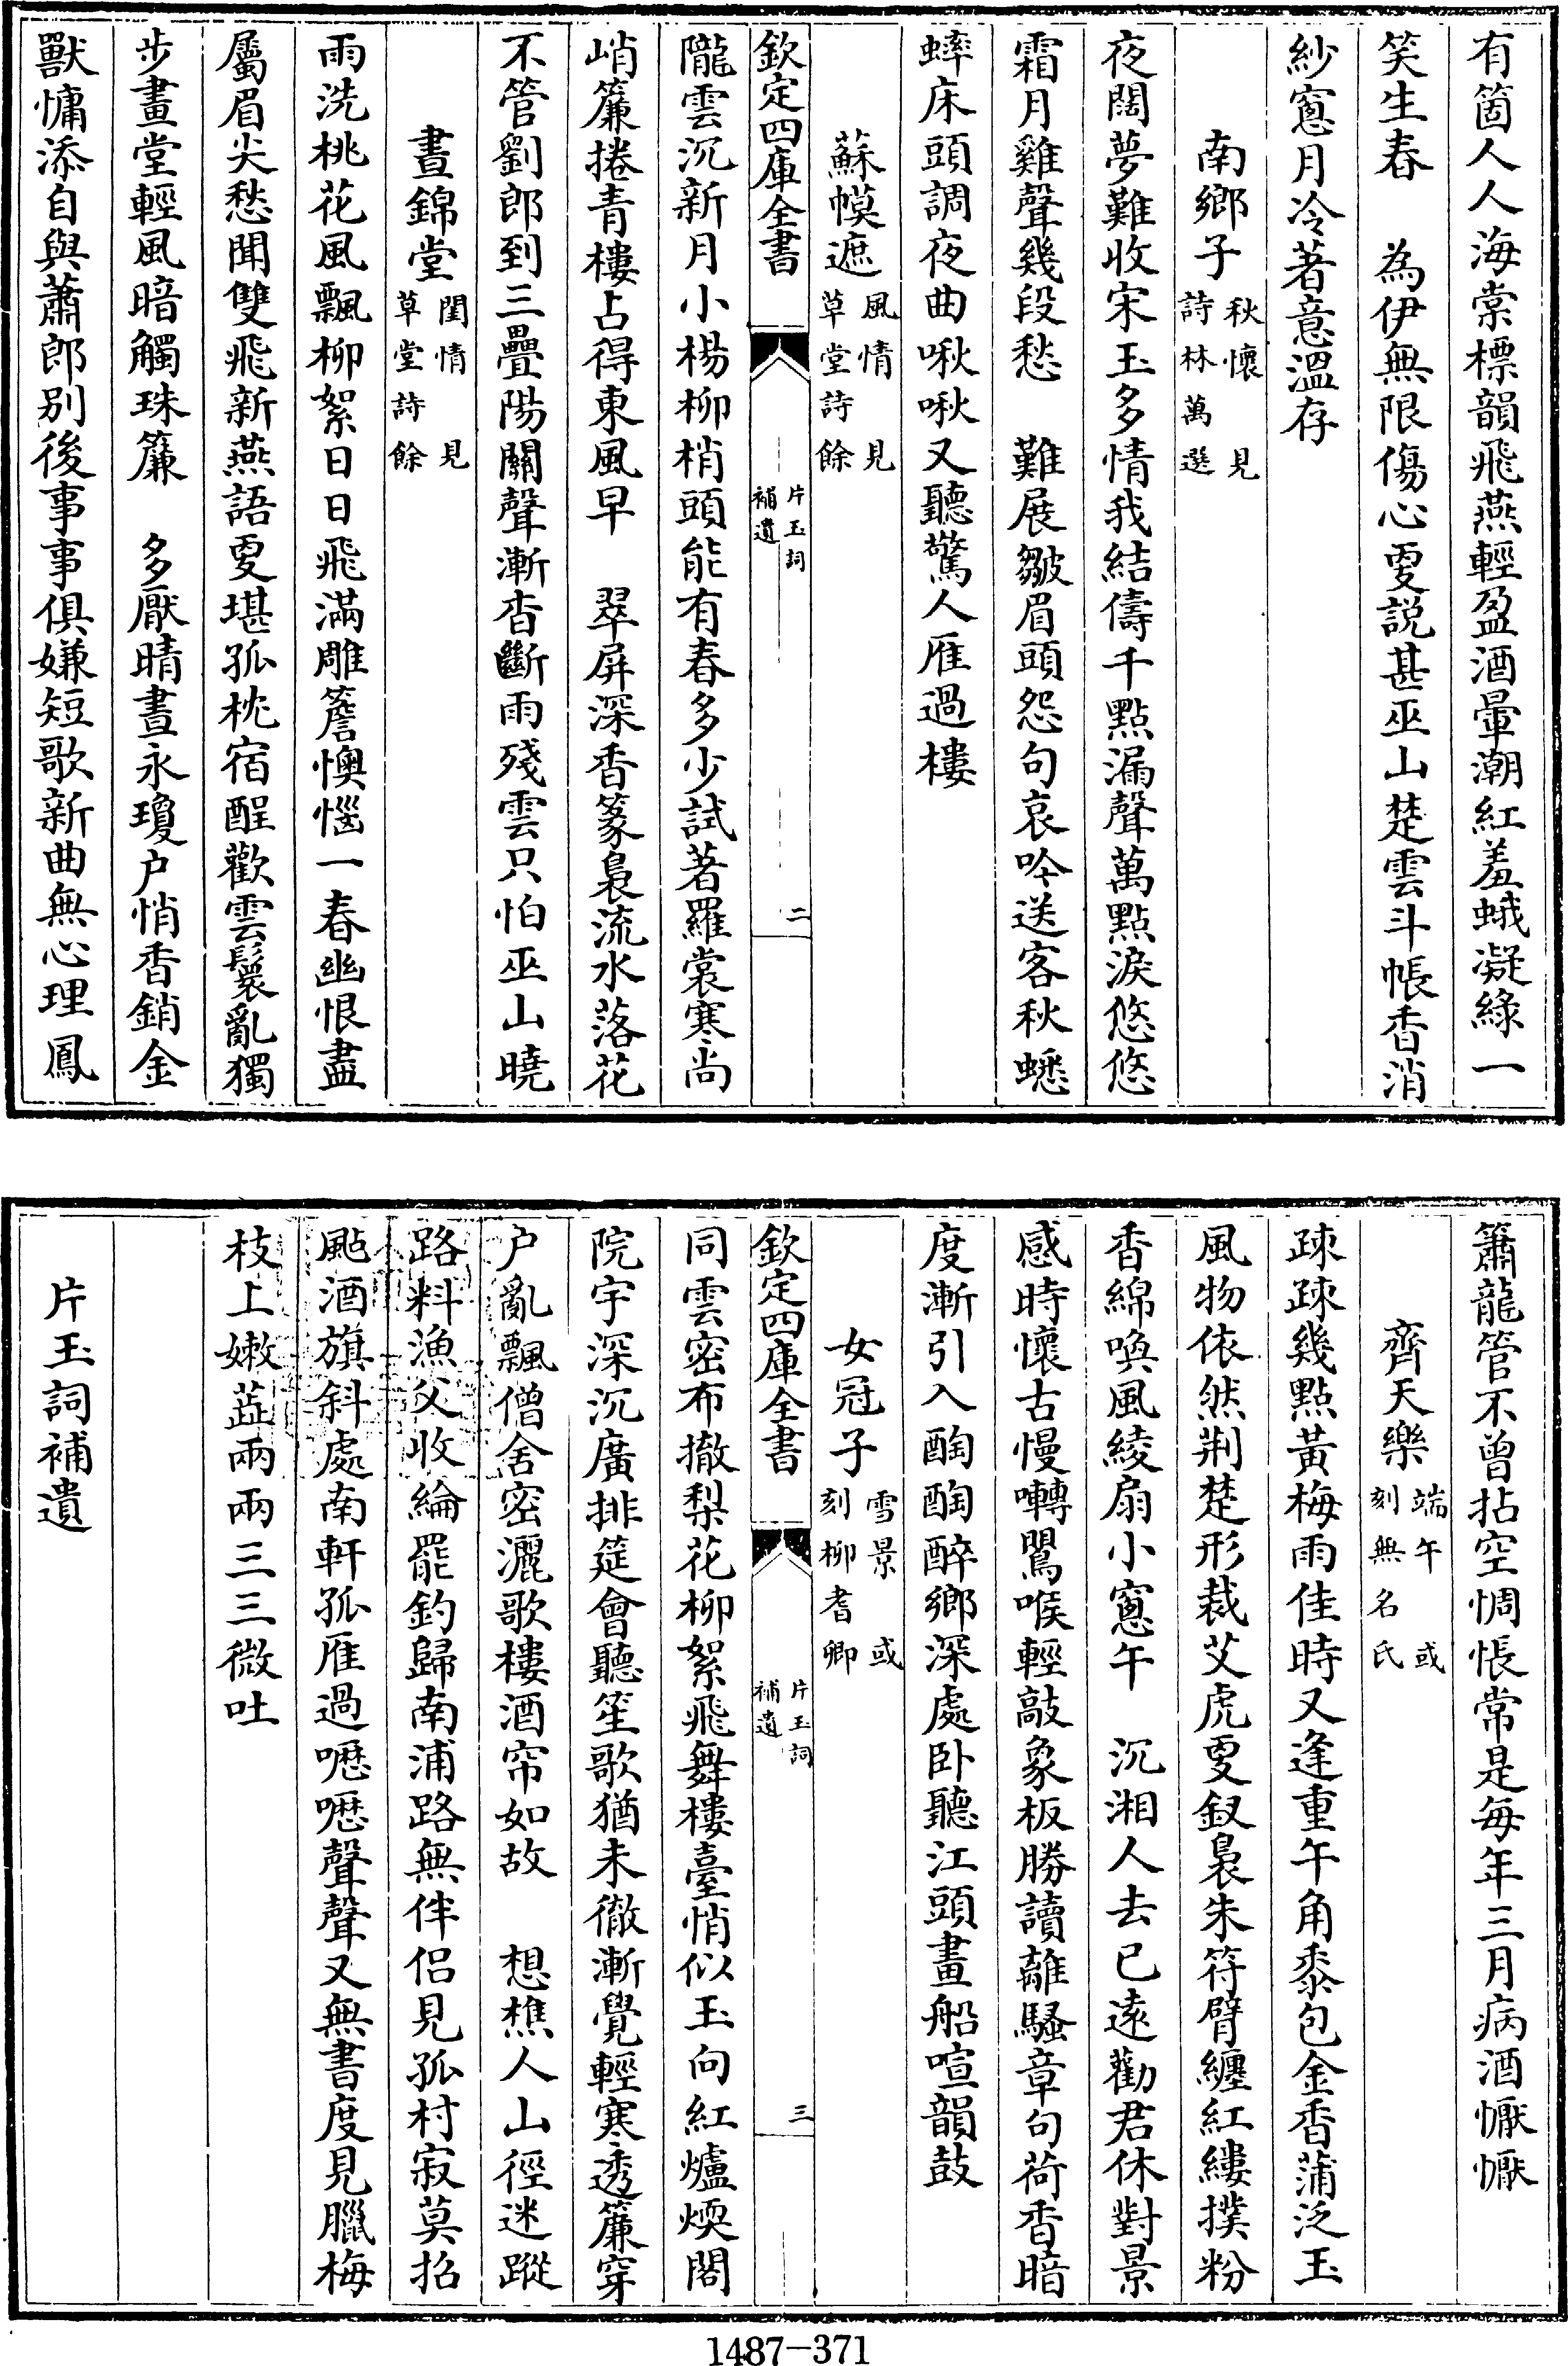 有箇人人海棠標韻飛燕輕盈酒暈潮紅羞蛾凝綠一
笑生春　為伊無限傷心更説甚巫山楚雲斗帳香消
紗窻月冷著意溫存
南鄉子秋懷　見
詩林萬選
夜闊夢難收宋玉多情我結儔千點漏聲萬點淚悠悠
霜月雞聲幾段愁　難展皺眉頭怨句哀吟送客秋蟋
蟀床頭調夜曲啾啾又聽驚人雁過樓
蘇幙遮風情　見
草堂詩餘
欽定四庫全書
片玉詞
補遺
二
隴雲沉新月小楊柳梢頭能有春多少試著羅裳寒尚
峭簾捲青樓占得東風早　翠屏深香篆裊流水落花
不管劉郎到三疊陽關聲漸杳斷雨殘雲只怕巫山曉
晝錦堂閨情　見
草堂詩餘
雨洗桃花風飄柳絮日日飛滿雕簷懊惱一春幽恨盡
屬眉尖愁聞雙飛新燕語更堪孤枕宿酲歡雲鬟亂獨
步畫堂輕風暗觸珠簾　多厭晴晝永瓊户悄香銷金
獸慵添自與蕭郎別後事事俱嫌短歌新曲無心理鳳
簫龍管不曾拈空惆悵常是每年三月病酒懨懨
齊天樂端午　或
刻無名氏
疎疎幾點黃梅雨佳時又逢重午角黍包金香蒲泛玉
風物依然荆楚形裁艾虎更釵裊朱符臂纏紅縷撲粉
香綿喚風綾扇小窻午　沉湘人去已遠勸君休對景
感時懷古慢囀鶯喉輕敲象板勝讀離騷章句荷香暗
度漸引入醄醄醉鄉深處卧聽江頭畫船喧韻鼓
女冠子雪景　或
刻柳耆卿
欽定四庫全書
片玉詞
補遺
三
同雲密布撤梨花柳絮飛舞樓臺悄似玉向紅爐煖閣
院宇深沉廣排筵會聽笙歌猶未徹漸覺輕寒透簾穿
户亂飄僧舍密灑歌樓酒帘如故　想樵人山徑迷蹤
路料漁父收綸罷釣歸南浦路無伴侣見孤村寂莫招
颭酒旗斜處南軒孤雁過嚦嚦聲聲又無書度見臘梅
枝上嫩蕋兩兩三三微吐
片玉詞補遺
1487-371